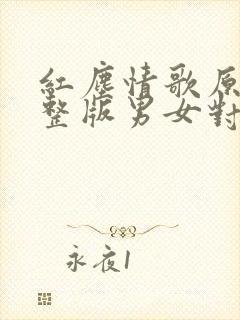 紅塵情歌原
整版男女對
永夜1